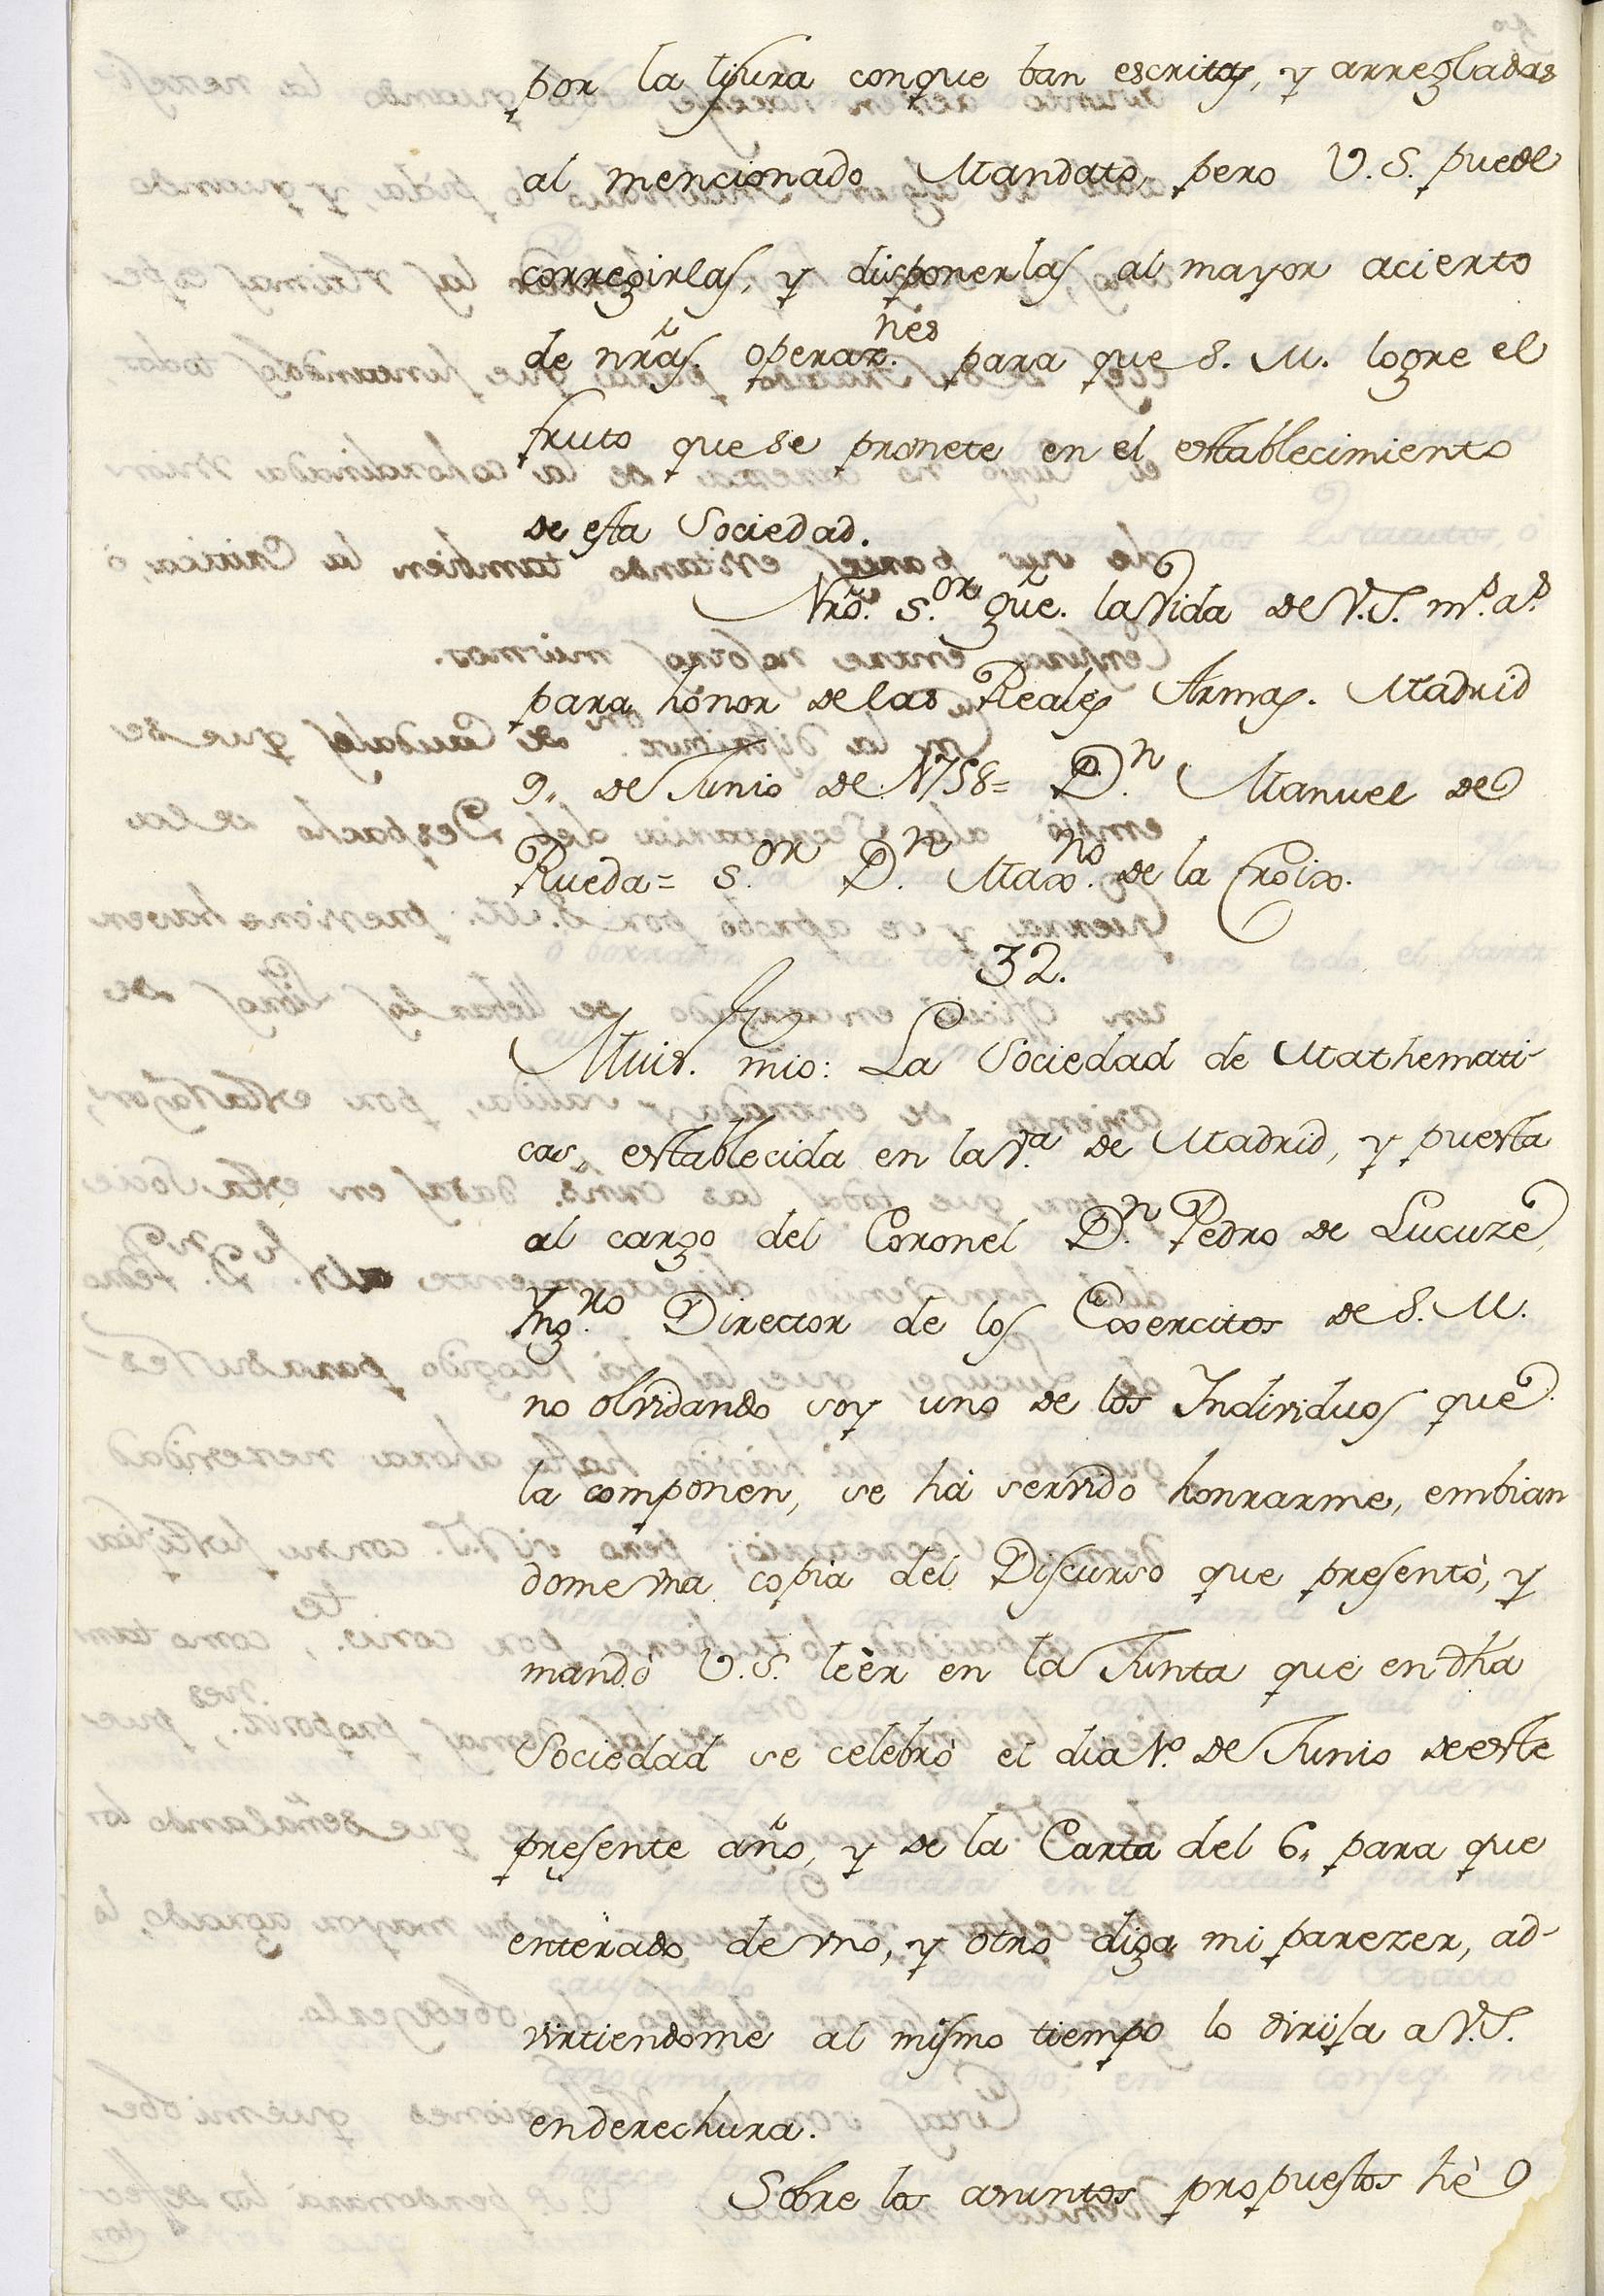 por la lijura conque ban escritas, y arregladas
al mencionado Mandato, pero V.S. puede
corregirlas, y disponerlas al mayor acierto
de nrãs. operaz.nes para que S.M. logre el
fruto que se promete en el establecimiento
de esta Sociedad.
Nrõ. S.or gũe. la Vida de V.S. m.s a.s
para honor de las Reales Armas. Madrid
9,, de Junio de 1758= D.n Manuel de
Rueda= S.or D.n Max.no de la Croix.
32.
Mui S.r mio: La Sociedad de Mathemati-
cas, establecida en la V.a de Madrid, y puesta
al cargo del Coronel D.n Pedro de Lucuze,
Yng.ro Director de los Exercitos de S.M.
no olvidando soy uno de los Individuos que
la componen, se há servido honrarme, embian
dome vna copia del Discurso que presentò, y
mandò V.S. leèr en la Junta que en dh̃a
Sociedad se celebrò el dia 1.o de Junio de este
presente año, y de la Carta del 6,, para que
enterado de vno, y otro diga mi parezer, ad-
virtiendome al mismo tiempo lo dirija a V.S.
enderechura.
Sobre los asuntos propuestos hè